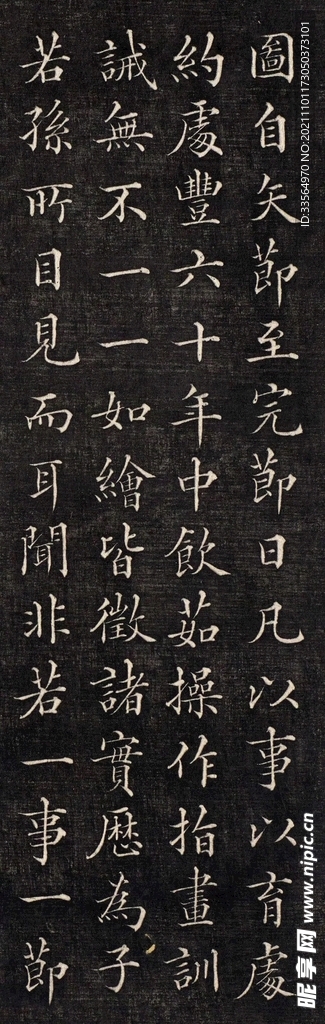 圖自矢節至完節日凡以事以育處
約處豐六十年中飲茹操作指畫訓
誡無不一一如繪皆徵諸實歷為子
若孫所目見而耳聞非若一事一節
ID:33564970 NO:20211101173050373101
昵享网 www.nipic.cn